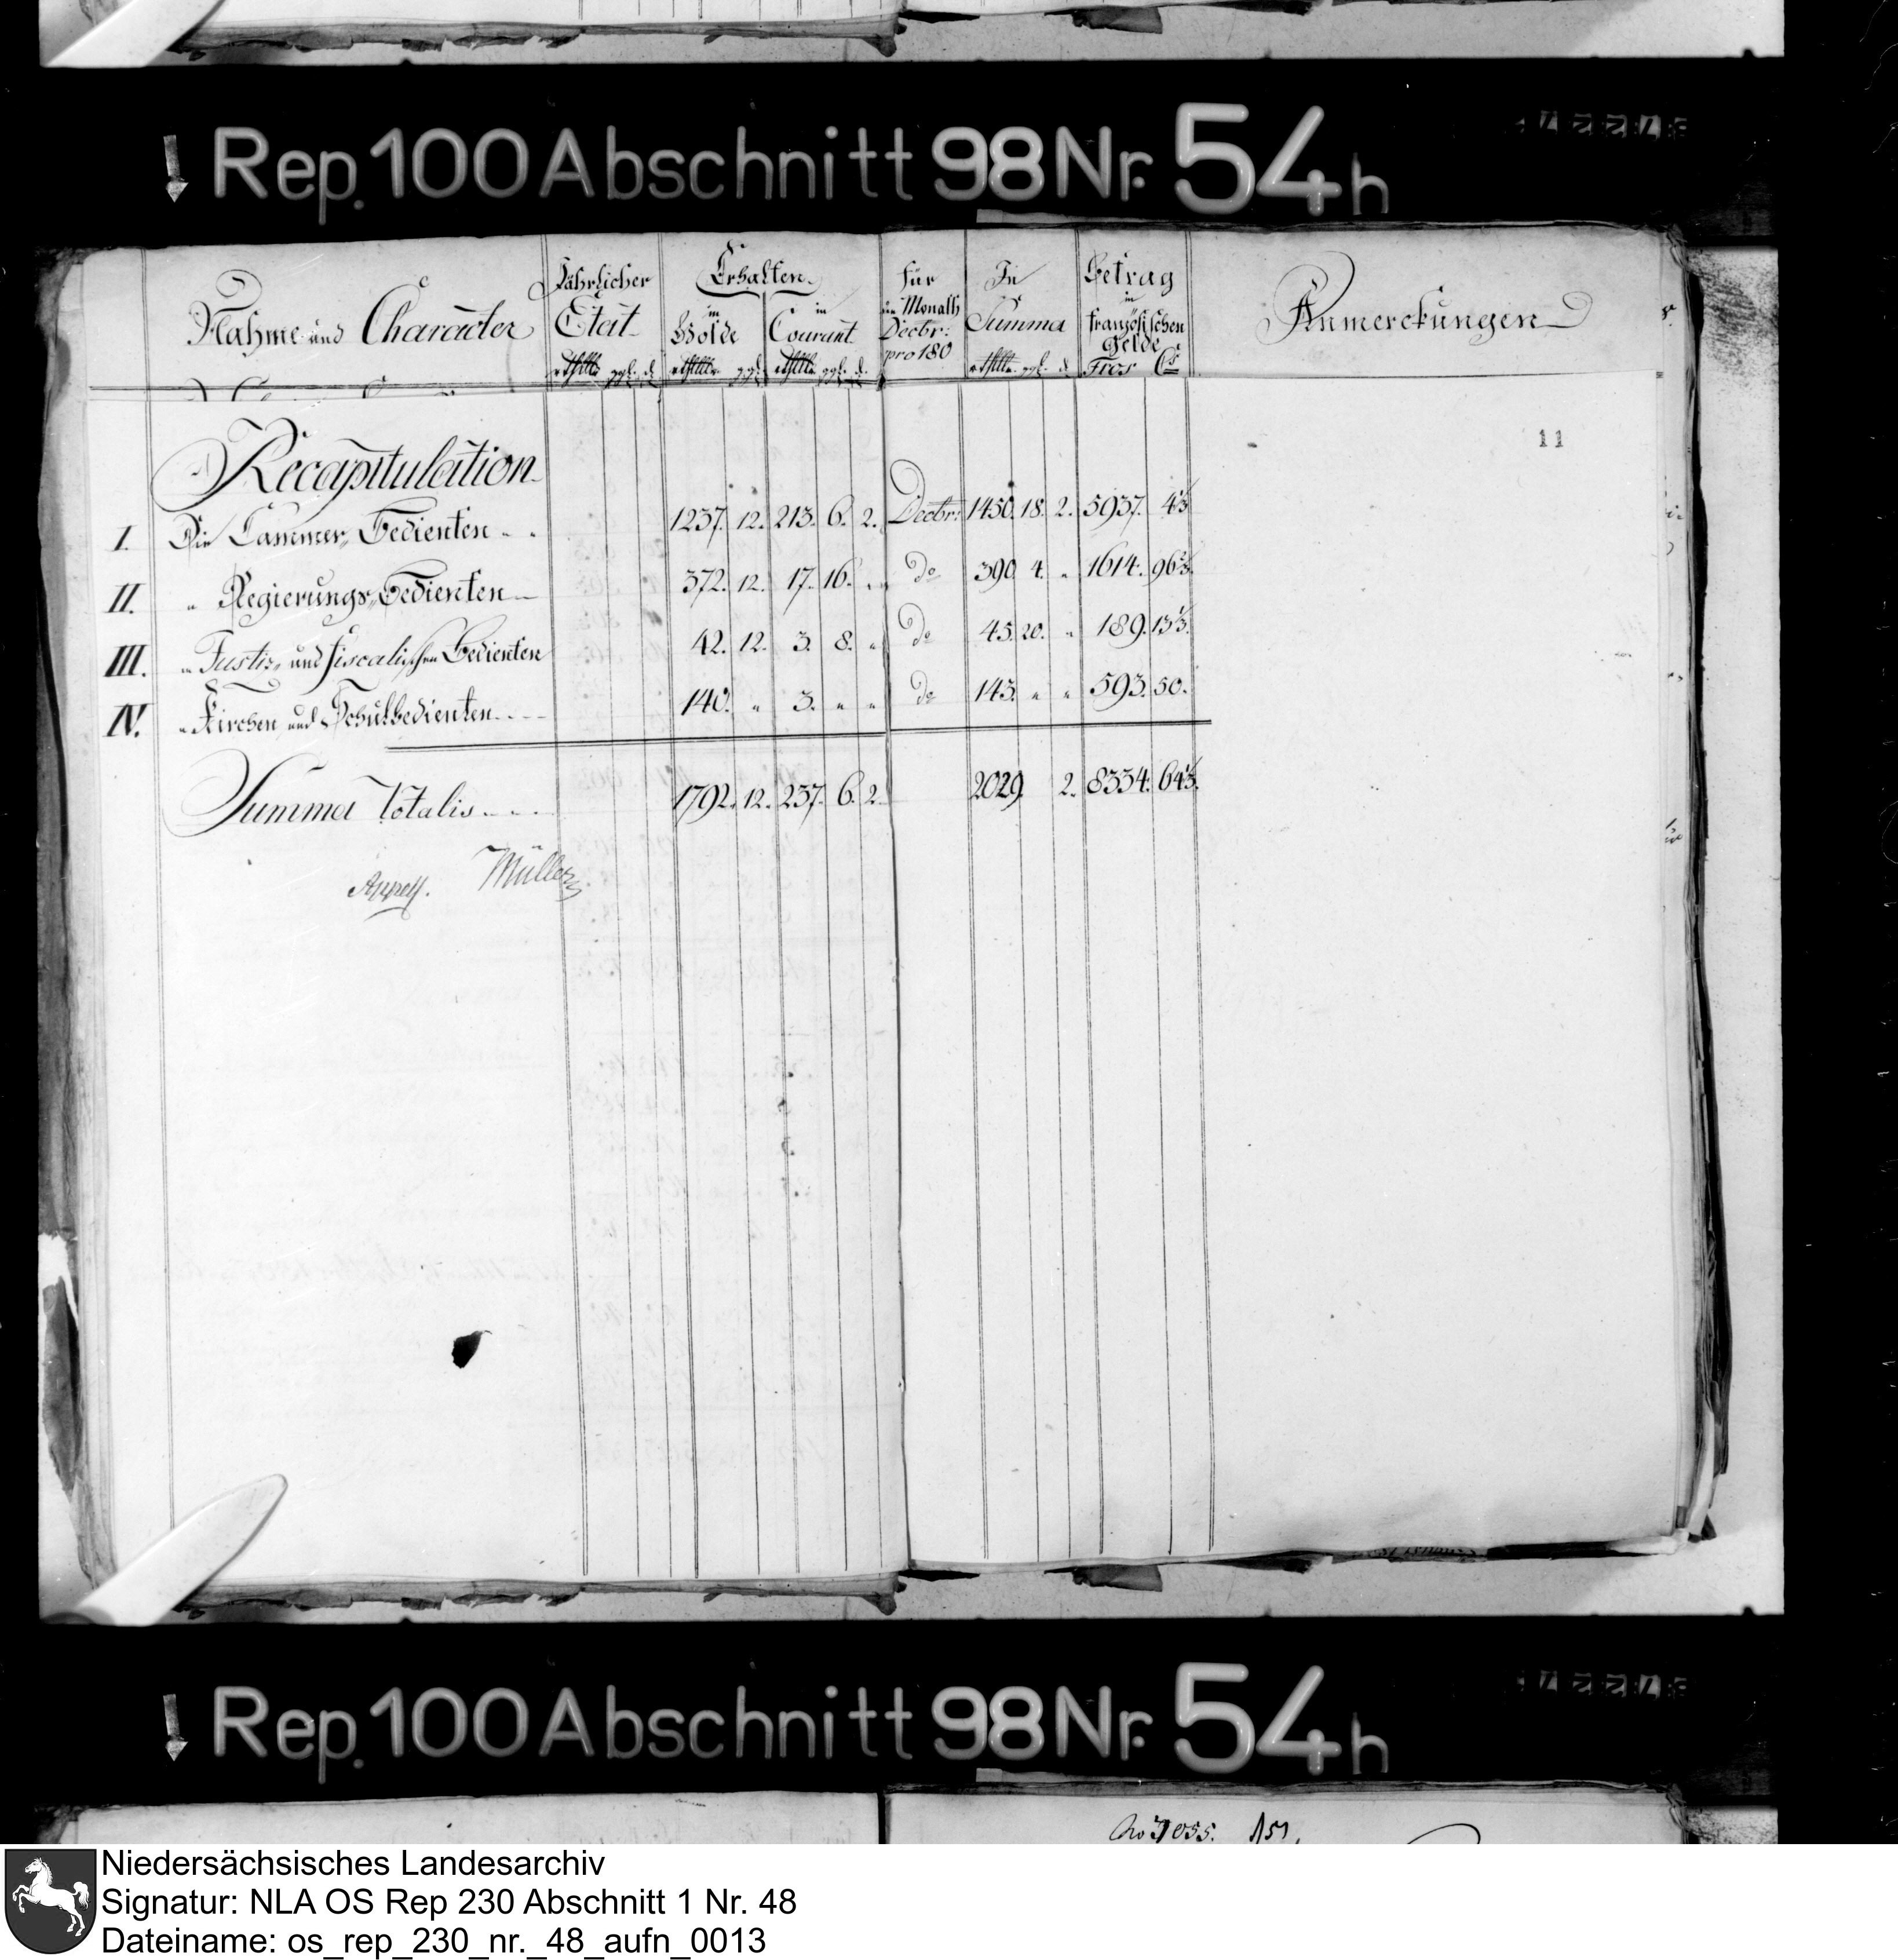 ↓ Rep. 100 Abschnitt 98 Nr. 54 h
Nahme und Character
Jährlicher Etat rthlr ggl. d
Erhalten
in Golde rthlr ggl
in Courant rthlr ggl. d.
für den Monath Decbr: pro 180
In Summa rthlr ggl. d
Betrag in französischen Gelde Frcs Cs
Anmerckungen
11
Recapitulation
I. Die Cammer Bedienten 1237. 12. 213. 6. 2. Decbr: 1450. 18. 2. 5937. 4⅓
II. " Regierungs Bedienten 372. 12. 17. 16. " do 390. 4. " 1614. 96⅔.
III. " Justiz und fiscalischen Bedienten 42. 12. 3. 8. " do 45. 20. " 189. 13⅓.
IV. " Kirchen und Schulbedienten 140. " 3. " " do 143. " " 593. 50.
Summa Totalis 1792. 12. 237. 6. 2. 2029. 2. 8334. 64⅓.
Müller
↓ Rep. 100 Abschnitt 98 Nr. 54 h
Niedersächsisches Landesarchiv
Signatur: NLA OS Rep 230 Abschnitt 1 Nr. 48
Dateiname: os_rep_230_nr._48_aufn_0013